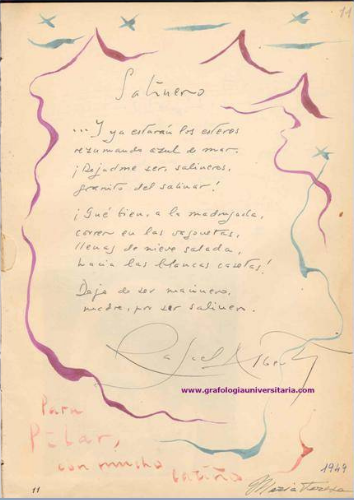 11
Salinero
... Y ya estarán los esteros
rezumando azul de mar.
¡Dejadme ser, salineros,
granito del salinar!
¡Qué bien, a la madrugada,
correr en las vagonetas,
llenas de nieve salada,
hacia las blancas casetas!
Dejo de ser marinero,
madre, por ser salinero.
Rafael Alberti
www.grafologiauniversitaria.com
Para
Pilar,
con mucho cariño
1949
María Teresa
11